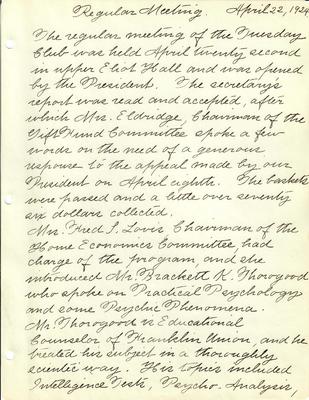 Regular Meeting. April 22, 1924
The regular meeting of the Tuesday
Club was held April twenty second
in upper Eliot Hall and was opened
by the President. The secretary's
report was read and accepted, after
which Mrs. Eldridge, Chairman of the
Gift Fund Committee spoke a few
words on the need of a generous
response to the appeal made by our
President on April eighth. The baskets
were passed and a little over seventy
six dollars collected.
Mrs. Fred S. Lovis Chairman of the
Home Economics Committee had
charge of the program, and she
introduced Mr. Brackett K. Thorogood
who spoke on Practical Psychology
and some Psychic Phenomena.
Mr. Thorogood is Educational
Counselor of Franklin Union, and he
treated his subject in a thoroughly
scientic way. His topics included
Intelligence Tests, Psycho-Analysis,